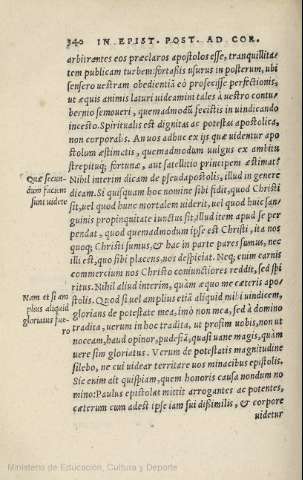 340 IN EPIST. POST. AD COR.
arbitrantes eos præclaros apostolos esse, tranquillita-
tem publicam turbem: fortaßis usurus in posterum, ubi
sensero uestram obedientiã eò profecisse perfectionis,
ut æquis animis laturi uideamini tales à uestro contu-
bernio semoueri, quemadmodũ fecistis in uindicando
incesto. Spiritualis est dignitas ac potestas apostolica,
non corporalis. An uos adhuc ex ijs quæ uidentur apo
stolum æstimatis, quemadmodum uulgus ex ambitu
strepituq; fortunæ, aut satellitio principem æstimat?
Quæ secun-
dum faciem
sunt uidete
Nihil interim dicam de pseudapostolis, illud in genere
dicam. Si quisquam hoc nomine sibi fidit, quod Christi
sit, uel quod hunc mortalem uiderit, uel quod huic san-
guinis propinquitate iunctus sit, illud item apud se per
pendat, quod quemadmodum ipse est Christi, ita nos
quoq; Christi sumus, & hac in parte pares sumus, nec
illi est, quo sibi placens, nos despiciat. Neq; enim carnis
commercium nos Christo coniunctiores reddit, sed spi
ritus. Nihil aliud interim, quàm æquo me cæteris apo-
Nam et si am
plius aliquid
gloriatus fue-
ro
stolis. Quod si uel amplius etiã aliquid mihi uindicem,
glorians de potestate mea, imò non mea, sed à domino
tradita, uerum in hoc tradita, ut prosim uobis, non ut
noceam, haud opinor, pudefiã, quasi uane magis, quàm
uere sim gloriatus. Verum de potestatis magnitudine
silebo, ne cui uidear territare uos minacibus epistolis.
Sic enim ait quispiam, quem honoris causa nondum no
mino: Paulus epistolas mittit arrogantes ac potentes,
cæterum cum adest ipse iam sui dißimilis, & corpore
uidetur
Ministerio de Educación, Cultura y Deporte